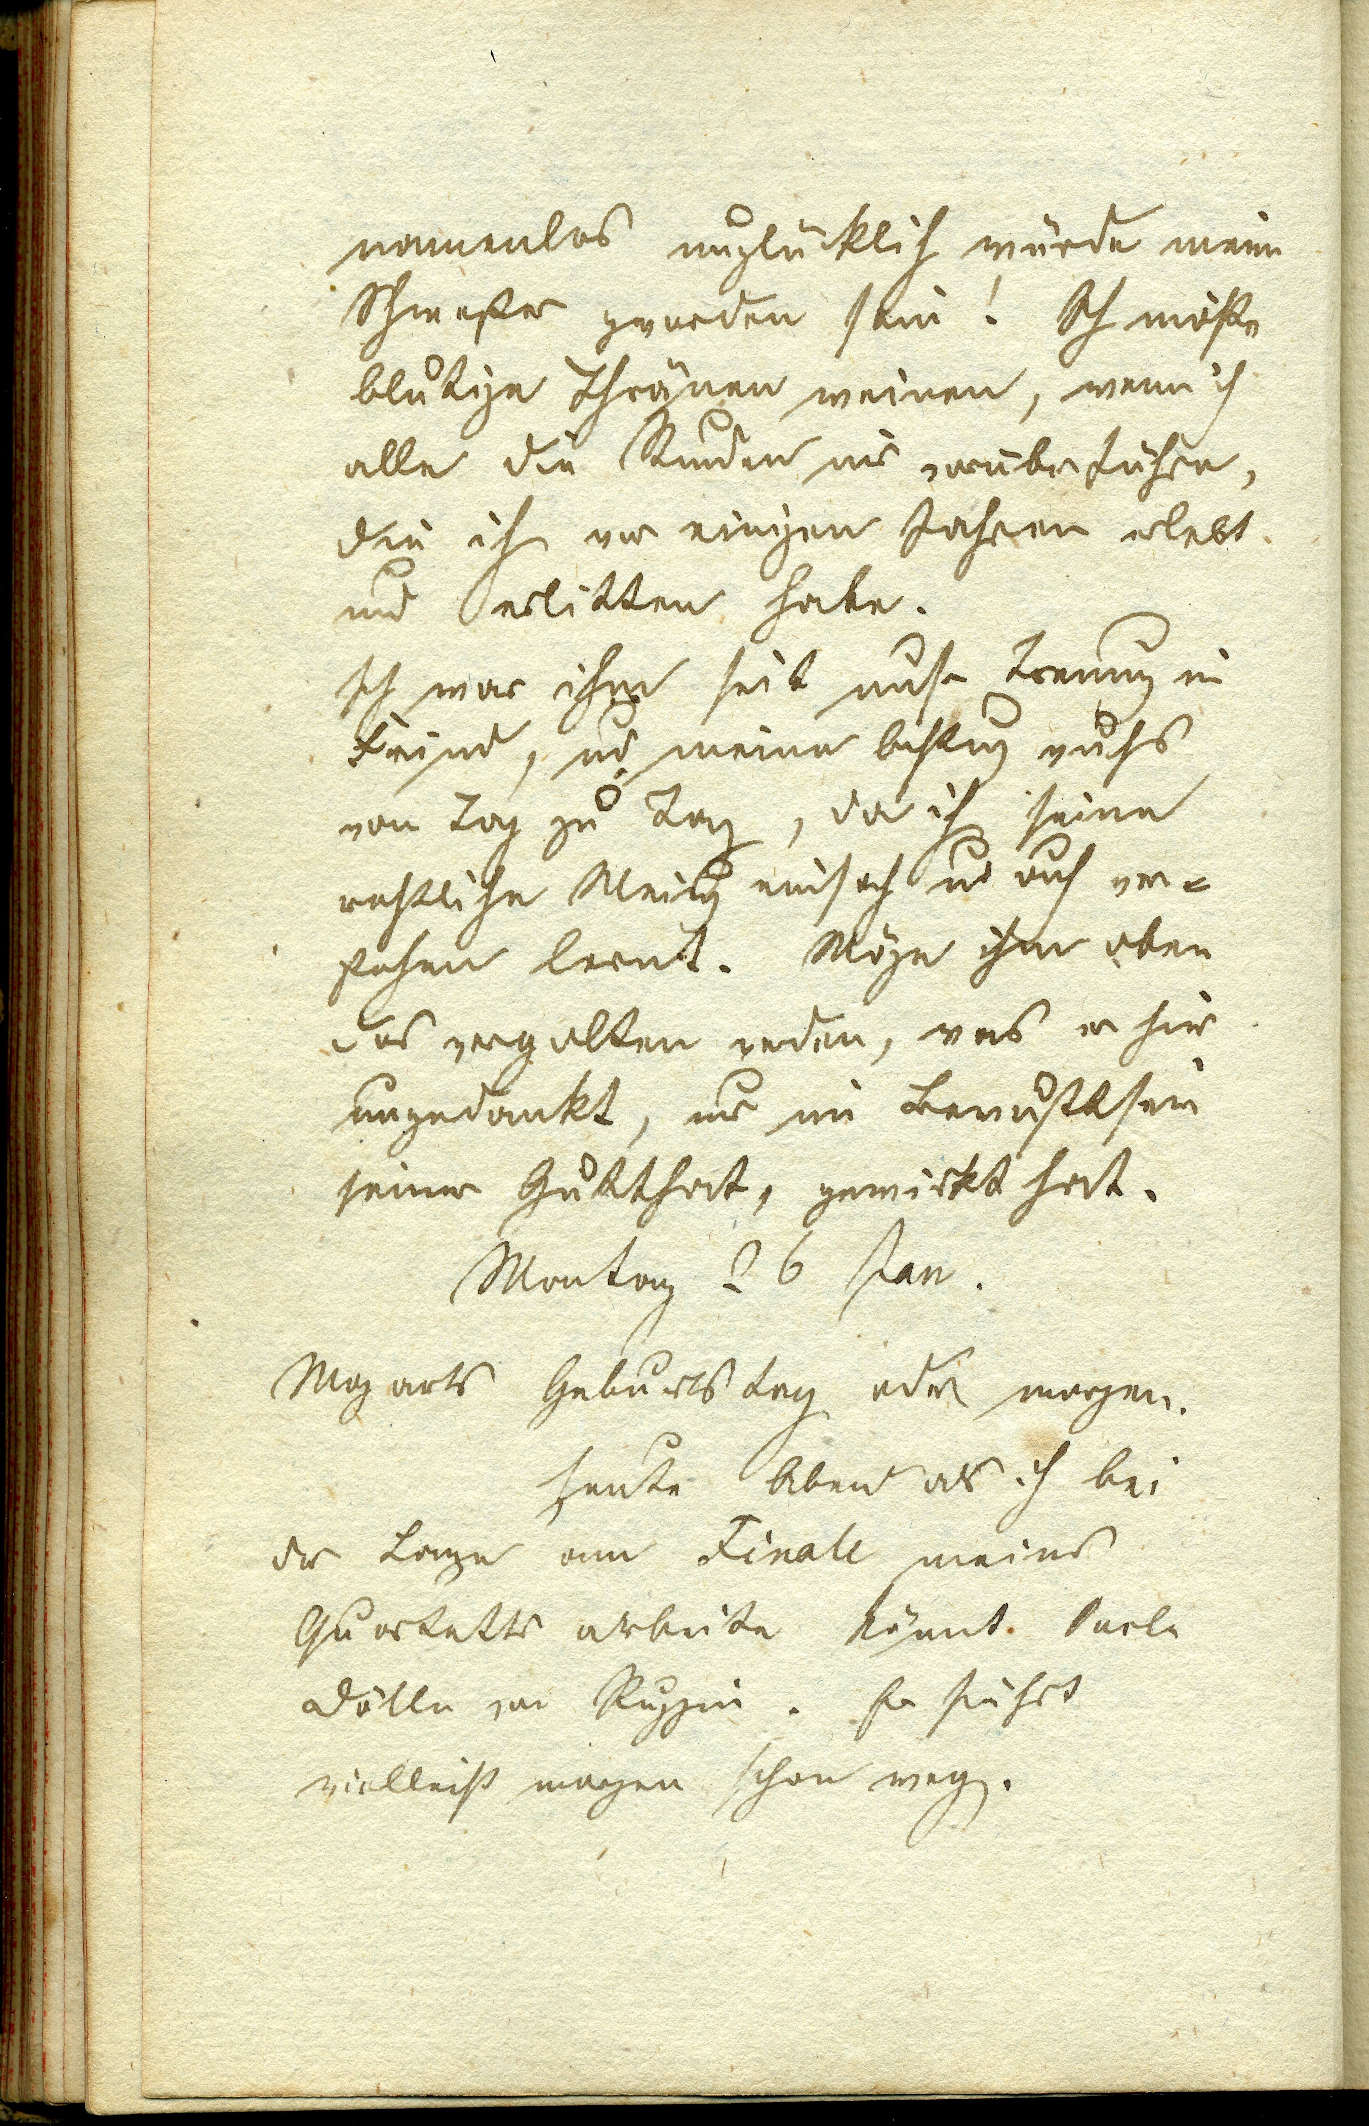 namenlos unglücklich würde meine
Schwester geworden sein! Ich möchte
blutige Thränen weinen, wenn ich
alle die Stunden mir vorüberführe,
die ich vor einigen Jahren erlebt
und erlitten habe.
Ich war ihm seit unsr Trennung ein
Freund, und meine Achtung wuchs
von Tag zu Tag, da ich seine
rechtliche Meinung einsah und auch ver-
stehen lernt. Möge ihm oben
das vergolten werden, was er hier
ungedankt, nur im Bewußtsein
seiner Gutthat, gewirkt hat.
Montag 26 Jan.
Mozarts Geburtstag oder morgen.
Heute Abend als ich bei
der Lampe am Finale meines
Quartetts arbeite kömmt
von Ruppin. Er führt
vielleicht morgen schon weg.